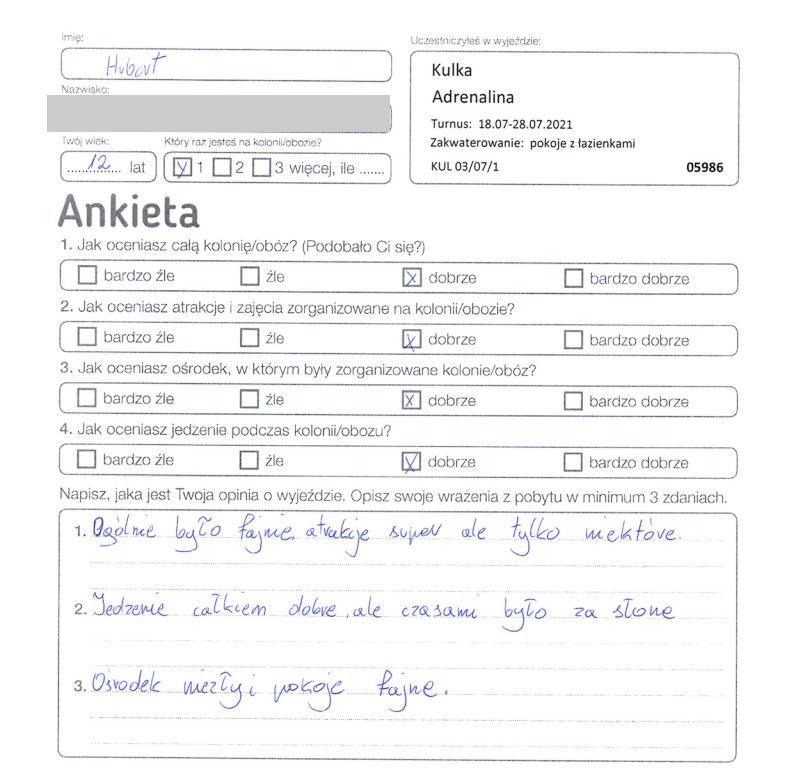 Imię:
Hubert
Nazwisko:
Twój wiek:
12 lat
Który raz jesteś na kolonii/obozie?
1 2 3 więcej, ile .......
Uczestniczyłeś w wyjeździe:
Kulka
Adrenalina
Turnus: 18.07-28.07.2021
Zakwaterowanie: pokoje z łazienkami
KUL 03/07/1 05986
Ankieta
1. Jak oceniasz całą kolonię/obóz? (Podobało Ci się?)
bardzo źle źle dobrze bardzo dobrze
2. Jak oceniasz atrakcje i zajęcia zorganizowane na kolonii/obozie?
bardzo źle źle dobrze bardzo dobrze
3. Jak oceniasz ośrodek, w którym były zorganizowane kolonie/obóz?
bardzo źle źle dobrze bardzo dobrze
4. Jak oceniasz jedzenie podczas kolonii/obozu?
bardzo źle źle dobrze bardzo dobrze
Napisz, jaka jest Twoja opinia o wyjeździe. Opisz swoje wrażenia z pobytu w minimum 3 zdaniach.
1. Ogólnie było fajnie, atrakcje super ale tylko niektóre.
2. Jedzenie całkiem dobre, ale czasami było za słone
3. Ośrodek niezły i pokoje fajne.